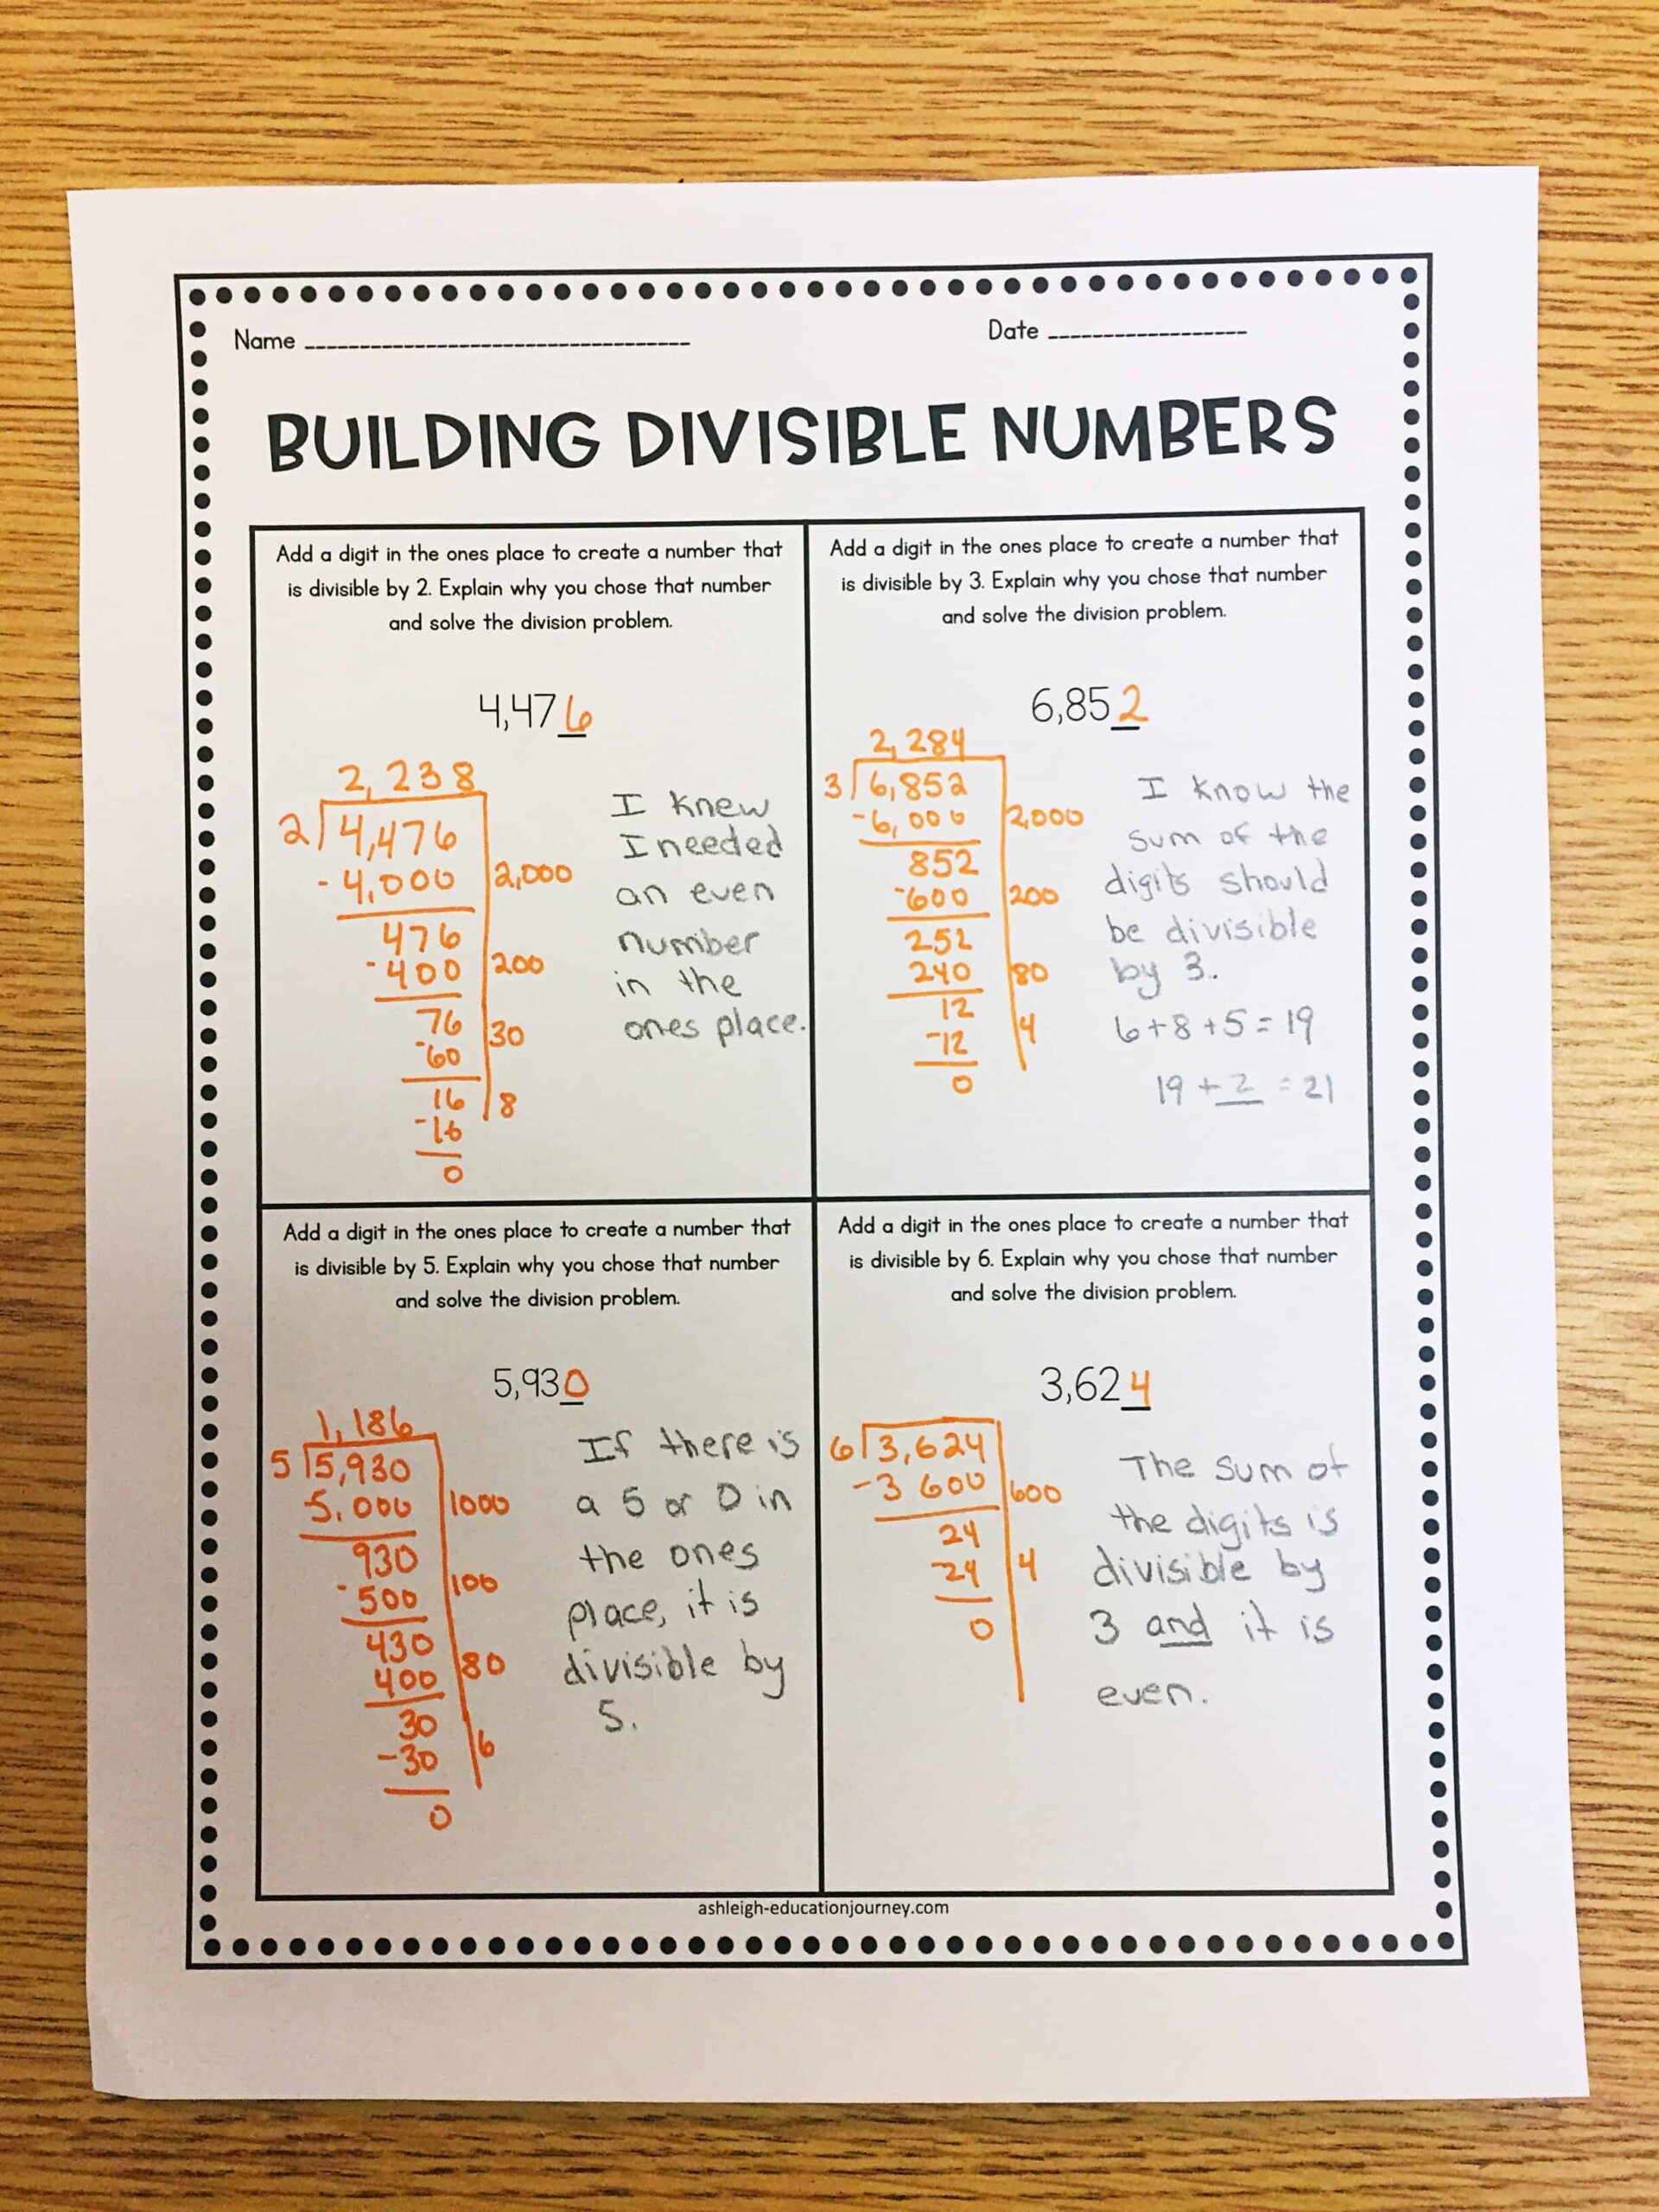 Name
Date
BUILDING DIVISIBLE NUMBERS
Add a digit in the ones place to create a number that
is divisible by 2. Explain why you chose that number
and solve the division problem.
4,476
2,238
2 4,476
-4,000 2,000
476
-400 200
76 30
-60
16 8
-16
0
I knew
I needed
an even
number
in the
ones place.
Add a digit in the ones place to create a number that
is divisible by 3. Explain why you chose that number
and solve the division problem.
6,852
2,284
3 6,852
-6,000 2,000
852
-600 200
252
240 80
12
-12 4
0
I know the
sum of the
digits should
be divisible
by 3.
6+8+5=19
19+2=21
Add a digit in the ones place to create a number that
is divisible by 5. Explain why you chose that number
and solve the division problem.
5,930
1,186
5 5,930
5,000 1000
930
-500 100
430
400 80
30
-30 6
0
If there is
a 5 or 0 in
the ones
place, it is
divisible by
5.
Add a digit in the ones place to create a number that
is divisible by 6. Explain why you chose that number
and solve the division problem.
3,624
6 3,624
-3600 600
24
24 4
0
The sum of
the digits is
divisible by
3 and it is
even.
ashleigh-educationjourney.com